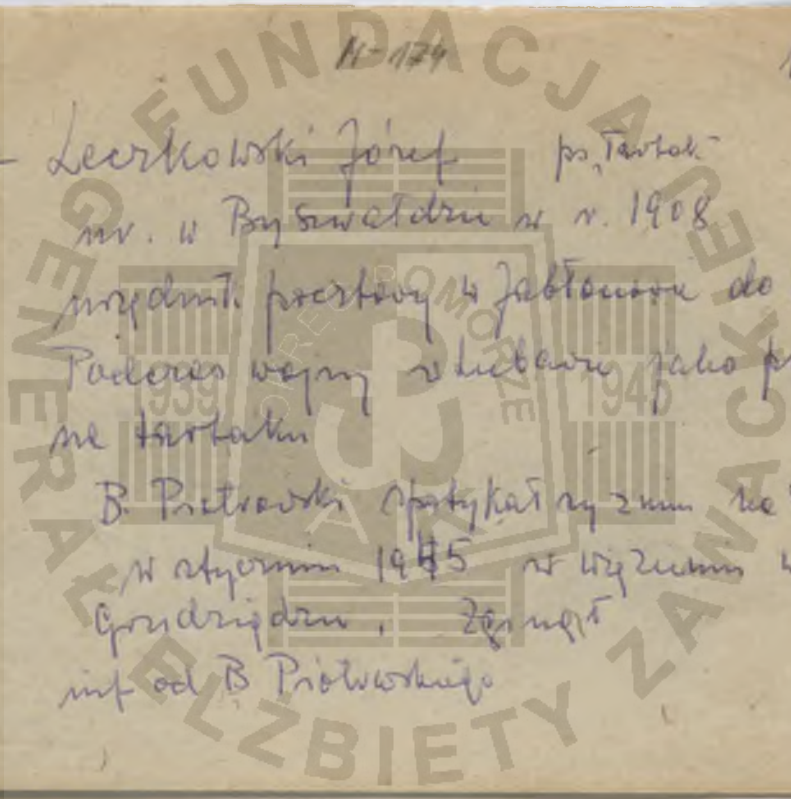 M-174
- Leczkowski Józef ps. Tartak
ur. w Byszwałdzie w r. 1908
urzędnik pocztowy w Jabłonowie do
Podczas wojny w Lubawie jako
na tartaku
B. Piotrowski spotykał się z nim
w styczniu 1945 w więzieniu w
Grudziądzu. Zginął
inf od B Piotrowskiego
FUNDACJA GENERAŁ ELŻBIETY ZAWACKIEJ
OKRĘG POMORZE
1939 1945
AK